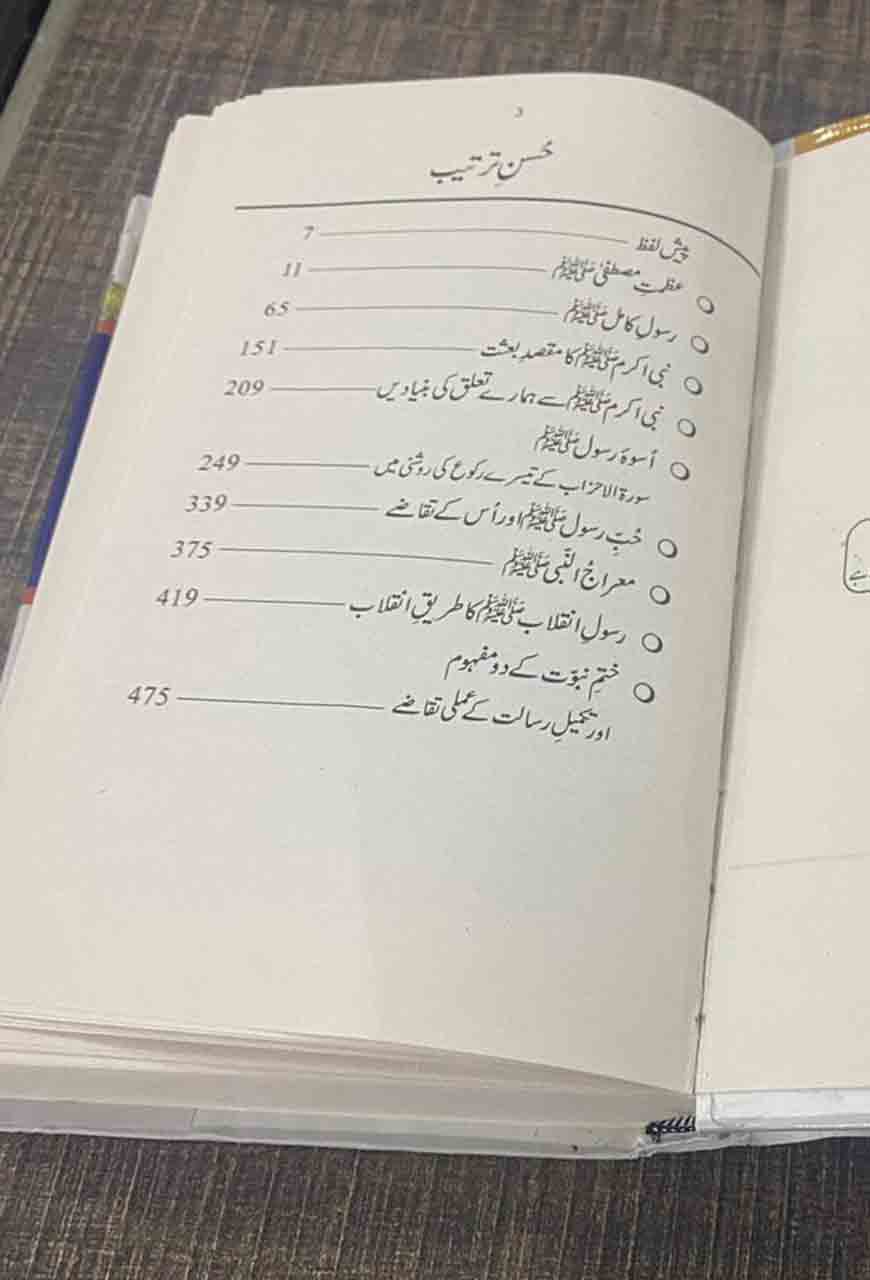 3
حُسنِ ترتیب
پیش لفظ 7
عظمتِ مصطفیٰ ﷺ 11
رسولِ کامل ﷺ 65
نبی اکرم ﷺ کا مقصدِ بعثت 151
نبی اکرم ﷺ سے ہمارے تعلق کی بنیادیں 209
اُسوۂ رسول ﷺ
سورۃ الاحزاب کے تیسرے رکوع کی روشنی میں 249
حُبِّ رسول ﷺ اور اُس کے تقاضے 339
معراجُ النَّبی ﷺ 375
رسولِ انقلاب ﷺ کا طریقِ انقلاب 419
ختمِ نبوّت کے دو مفہوم
اور تکمیلِ رسالت کے عملی تقاضے 475
ہے